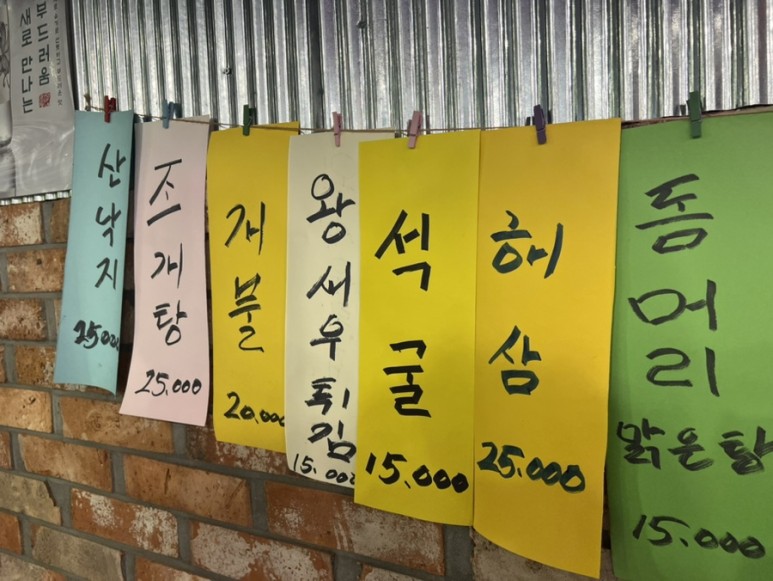 부드러움
새로 만나는
산낙지
25,000
조개탕
25.000
개불
20.000
왕새우튀김
15.000
석굴
15.000
해삼
25.000
돔머리
맑은탕
15.000